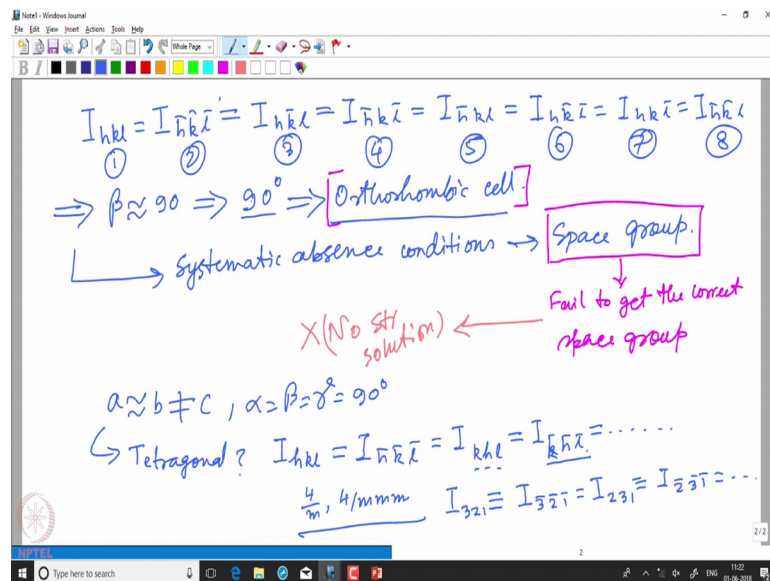 Note1 - Windows Journal
File Edit View Insert Actions Tools Help
Whole Page
B I
I_hkl = I_h̄k̄l̄ = I_hk̄l = I_h̄kl̄ = I_h̄kl = I_hk̄l̄ = I_hkl̄ = I_h̄k̄l
① ② ③ ④ ⑤ ⑥ ⑦ ⑧
⇒ β ≈ 90 ⇒ 90° ⇒ [Orthorhombic cell.]
→ Systematic absence conditions → Space group.
Fail to get the correct
space group
X (No str
solution)
a ≈ b ≠ c , α = β = γ = 90°
↳ Tetragonal ? I_hkl = I_h̄k̄l̄ = I_khl = I_k̄h̄l̄ = ......
4/m , 4/mmm I_321 = I_3̄2̄1̄ = I_231 = I_2̄3̄1̄ = ...
2/2
NPTEL
2
Type here to search
ENG
11:22
01-06-2018